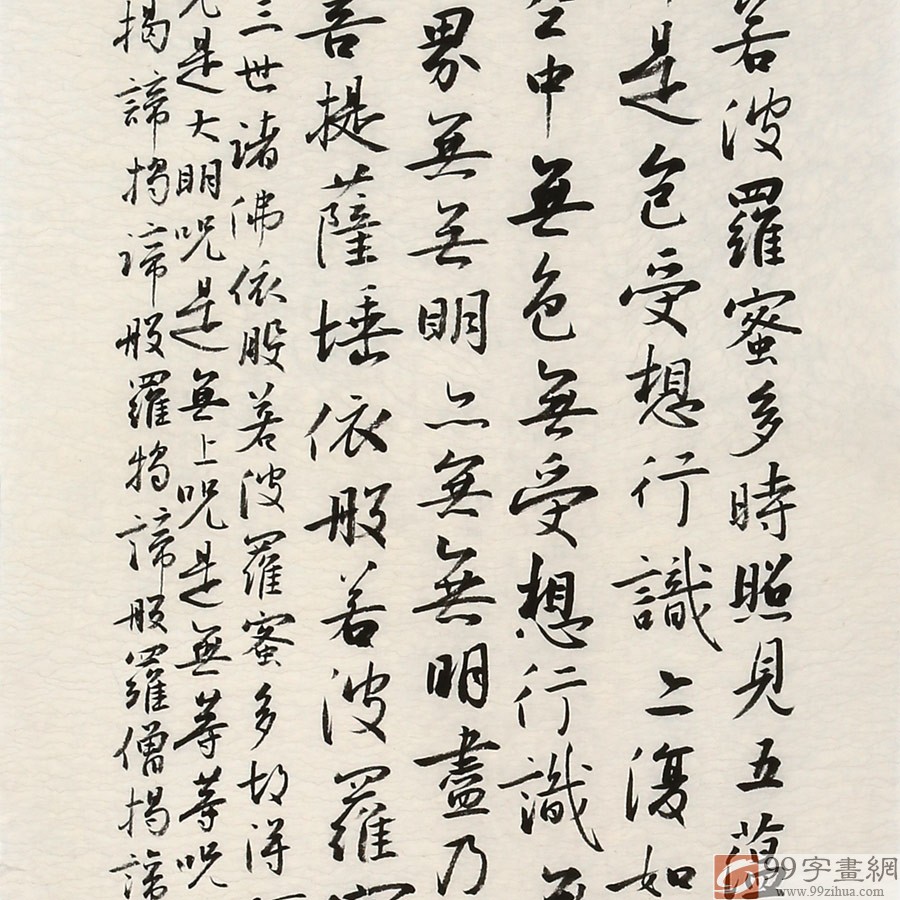 若波羅蜜多時照見五蘊
是色受想行識亦復如
空中無色無受想行識無
界無無明亦無無明盡乃
菩提薩埵依般若波羅蜜
三世諸佛依般若波羅蜜多故得
是大明咒是無上咒是無等等咒
揭諦揭諦般羅揭諦般羅僧揭諦
99字畫網
www.99zihua.com